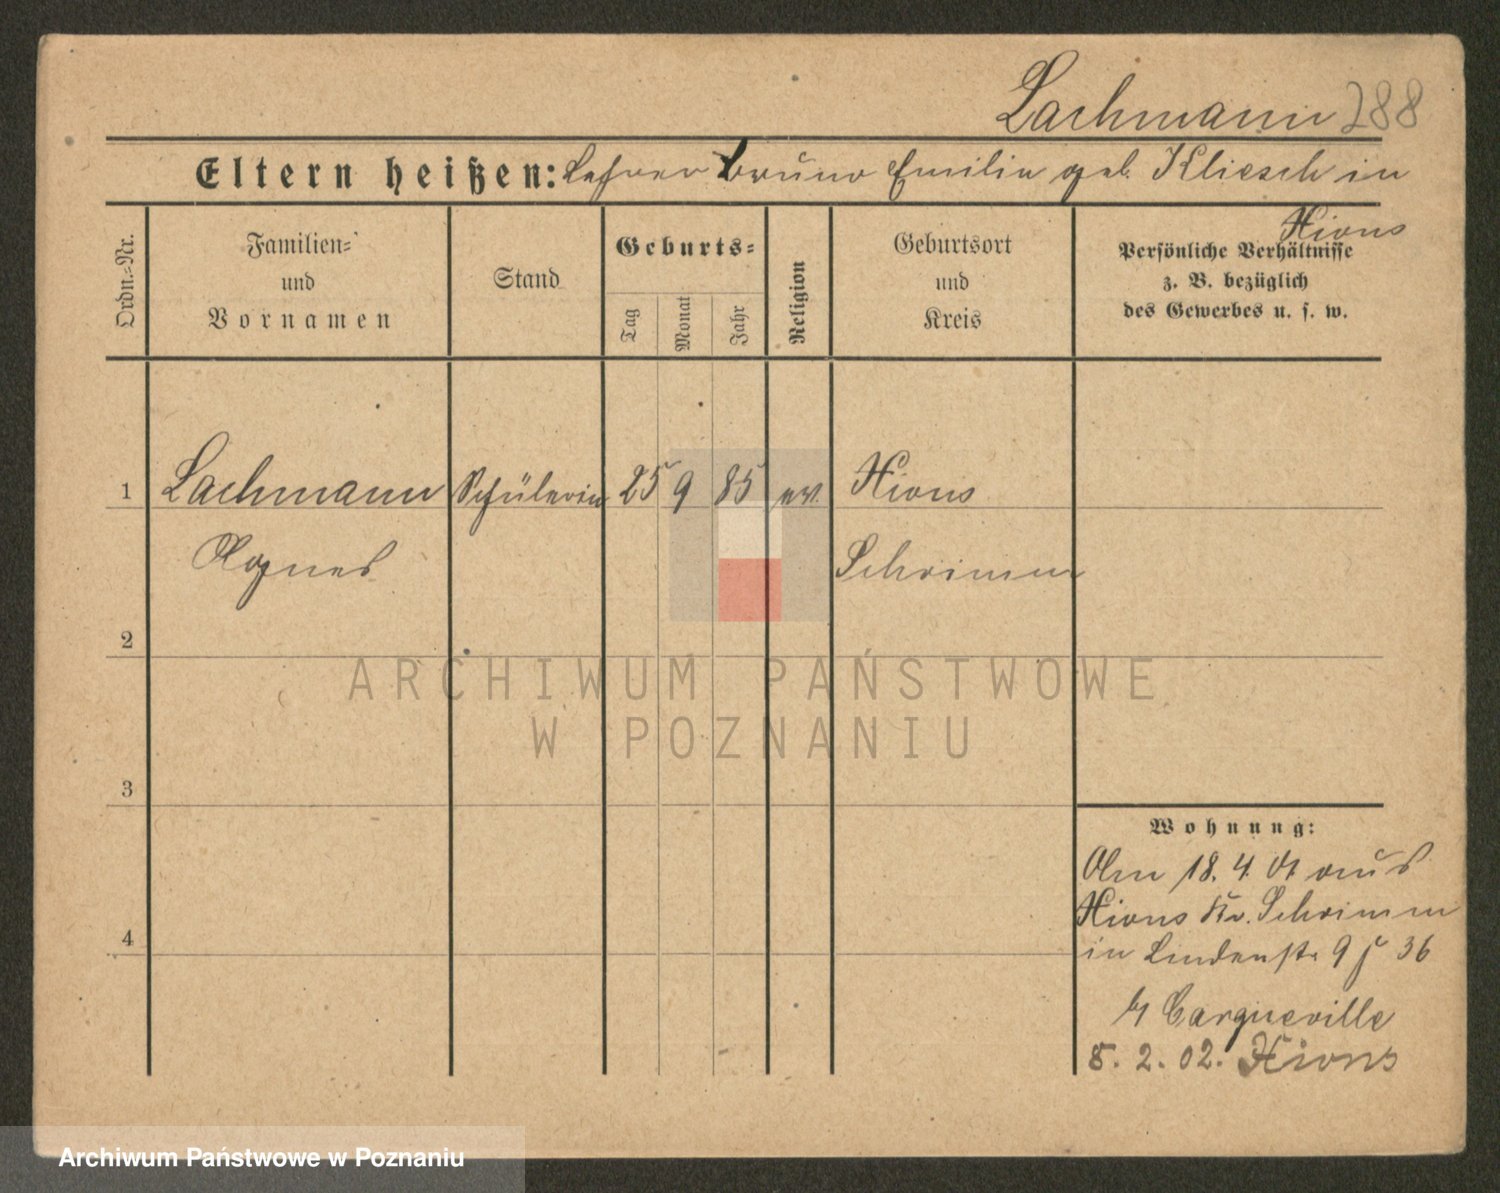 Lachmann 288
Eltern heißen: Lehrer Bruno Emilie geb. Kliesch in
Xions
Ordn.-Nr.
Familien-
und
Vornamen
Stand
Geburts-
Tag
Monat
Jahr
Religion
Geburtsort
und
Kreis
Persönliche Verhältnisse
z. B. bezüglich
des Gewerbes u. s. w.
1 Lachmann Schülerin 25 9 85 ev. Xions
Agnes Schrimm
2
3
4
Wohnung:
Am 18. 4. 01 aus
Xions Kr. Schrimm
in Lindenstr 9 36
b/ Cargueville
8. 2. 02. Xions
ARCHIWUM PAŃSTWOWE
W POZNANIU
Archiwum Państwowe w Poznaniu